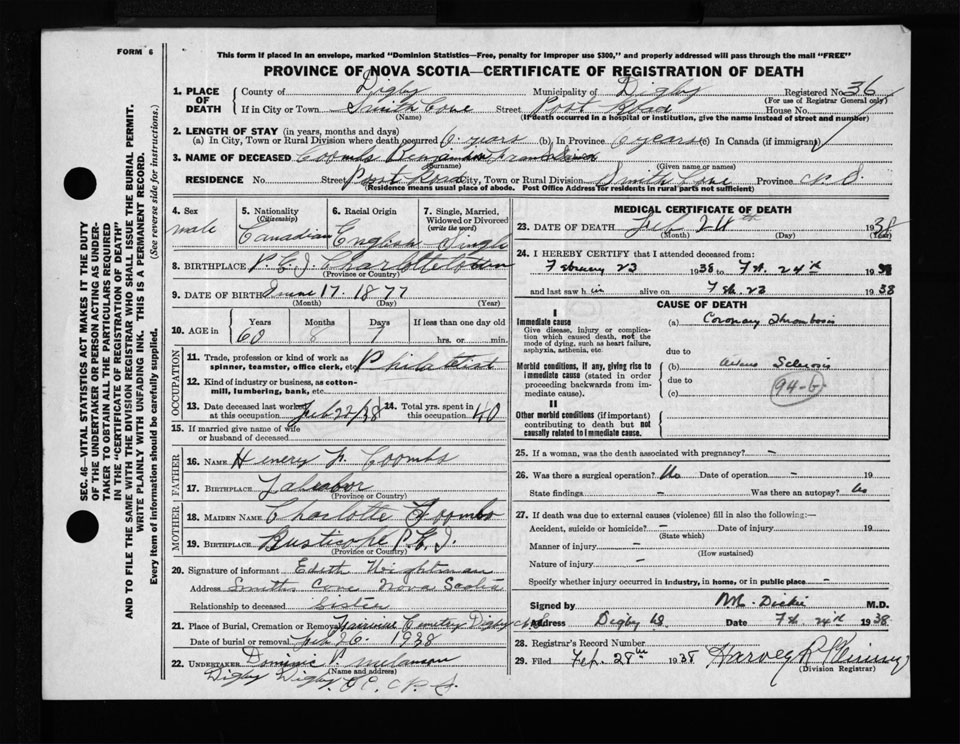 FORM 6
This form if placed in an envelope, marked "Dominion Statistics—Free, penalty for improper use $300," and properly addressed will pass through the mail "FREE"
PROVINCE OF NOVA SCOTIA—CERTIFICATE OF REGISTRATION OF DEATH
1. PLACE OF DEATH
County of Digby Municipality of Digby Registered No. 36
(For use of Registrar General only)
If in City or Town Smith Cove Street Post Road House No.
(Name) (If death occurred in a hospital or institution, give the name instead of street and number)
2. LENGTH OF STAY (in years, months and days)
(a) In City, Town or Rural Division where death occurred 6 years (b), In Province 6 years (c) In Canada (if immigrant)
3. NAME OF DECEASED Coombs Benjamin
(Surname) (Given name or names)
RESIDENCE No. Street Post Road City, Town or Rural Division Smith Cove Province N. S.
(Residence means usual place of abode. Post Office Address for residents in rural parts not sufficient)
4. Sex
male
5. Nationality
(Citizenship)
Canadian
6. Racial Origin
English
7. Single, Married, Widowed or Divorced
(write the word)
Single
8. BIRTHPLACE P.E.I. Charlottetown
(Province or Country)
9. DATE OF BIRTH June 17. 1877
(Month) (Day) (Year)
10. AGE in
Years Months Days If less than one day old
60 8 7 hrs. or min.
OCCUPATION
11. Trade, profession or kind of work as spinner, teamster, office clerk, etc. Philatelist
12. Kind of industry or business, as cotton-mill, lumbering, bank, etc.
13. Date deceased last worked at this occupation Feb 22/38 14. Total yrs. spent in this occupation 40
15. If married give name of wife or husband of deceased
FATHER
16. NAME Henery Coombs
17. BIRTHPLACE
(Province or Country)
MOTHER
18. MAIDEN NAME Charlotte
19. BIRTHPLACE P.E.I.
(Province or Country)
20. Signature of informant Edith Wightman
Address Smiths Cove Nova Scotia
Relationship to deceased Sister
21. Place of Burial, Cremation or Removal Cemetery Digby
Date of burial or removal Feb 26. 1938
22. UNDERTAKER Dominic P. Melanson
(Name and address)
Digby Digby N. S.
MEDICAL CERTIFICATE OF DEATH
23. DATE OF DEATH Feb 24th 1938
(Month) (Day) (Year)
24. I HEREBY CERTIFY that I attended deceased from:
February 23 1938 to Feb. 24th 1938
and last saw h im alive on Feb. 23 1938
CAUSE OF DEATH
I
Immediate cause
Give disease, injury or complication which caused death, not the mode of dying, such as heart failure, asphyxia, asthenia, etc.
(a) Coronary Thrombosis
due to
Morbid conditions, if any, giving rise to immediate cause (stated in order proceeding backwards from immediate cause).
(b) Arterio Sclerosis
due to
(c)
94-b
II
Other morbid conditions (if important) contributing to death but not causally related to immediate cause.
25. If a woman, was the death associated with pregnancy? –
26. Was there a surgical operation? No Date of operation – 19
State findings – Was there an autopsy? No
27. If death was due to external causes (violence) fill in also the following:—
Accident, suicide or homicide? – Date of injury 19
(State which)
Manner of injury –
(How sustained)
Nature of injury –
Specify whether injury occurred in industry, in home, or in public place –
Signed by Dickie M.D.
Address Digby NS Date Feb. 24th 1938
28. Registrar's Record Number
29. Filed Feb. 28th 1938 Harvey R
(Division Registrar)
SEC. 46—VITAL STATISTICS ACT MAKES IT THE DUTY
OF THE UNDERTAKER OR PERSON ACTING AS UNDER-
TAKER TO OBTAIN ALL THE PARTICULARS REQUIRED
IN THE "CERTIFICATE OF REGISTRATION OF DEATH"
AND TO FILE THE SAME WITH THE DIVISION REGISTRAR WHO SHALL ISSUE THE BURIAL PERMIT.
WRITE PLAINLY WITH UNFADING INK. THIS IS A PERMANENT RECORD.
Every item of information should be carefully supplied. (See reverse side for instructions.)